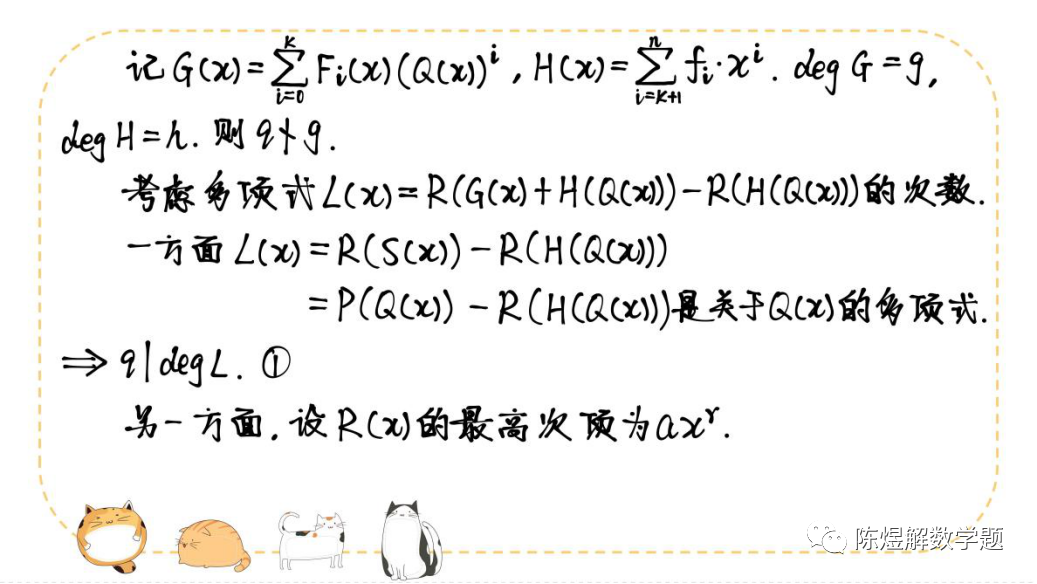 记 G(x)=∑_{i=0}^{k} F_i(x)(Q(x))^i, H(x)=∑_{i=k+1}^{n} f_i·x^i. deg G=g,
deg H=h. 则 q∤g.
考虑多项式 L(x)=R(G(x)+H(Q(x)))-R(H(Q(x)))的次数.
一方面 L(x)=R(S(x))-R(H(Q(x)))
=P(Q(x))-R(H(Q(x)))是关于Q(x)的多项式.
⇒ q|deg L. ①
另一方面,设R(x)的最高次项为ax^r.
陈煜解数学题